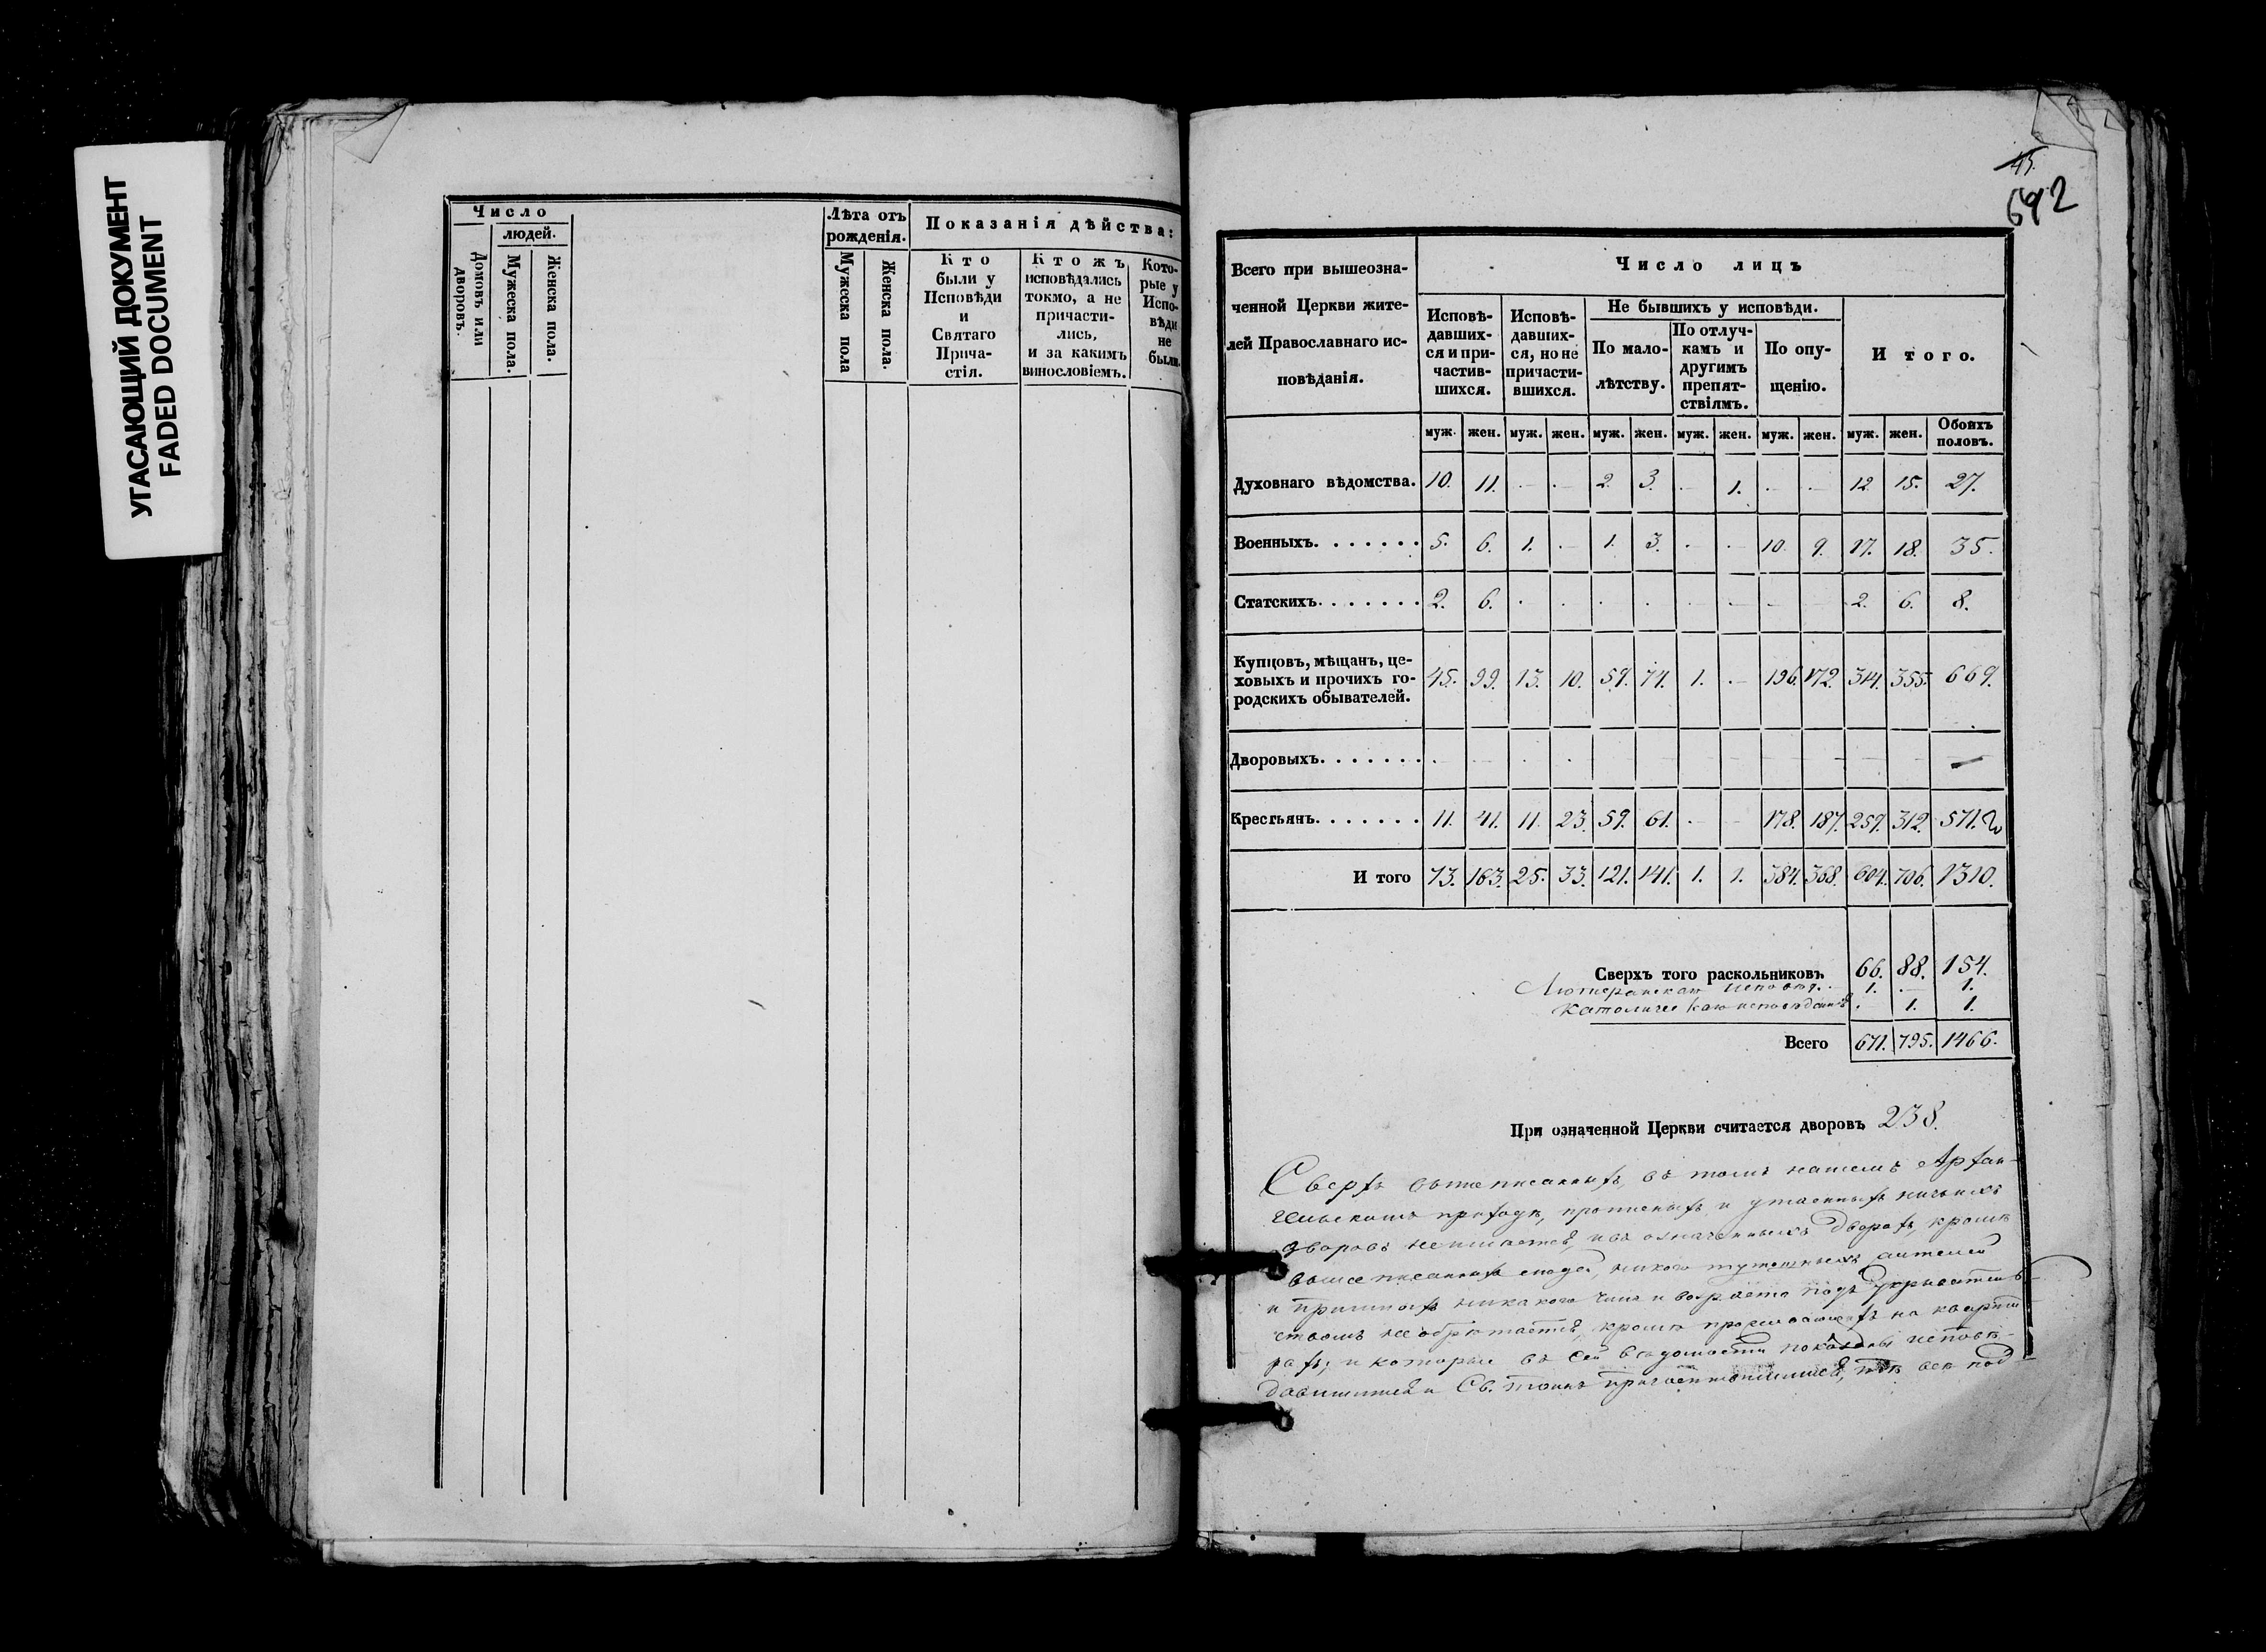 УГАСАЮЩИЙ ДОКУМЕНТ
FADED DOCUMENT
Число
людей.
Домовъ или дворовъ.
Мужеска пола.
Женска пола.
Лѣта отъ
рожденія.
Мужеска пола
Женска пола.
Показанія дѣйства:
Кто
были у
Исповѣди
и
Святаго
Прича-
стія.
Ктожъ
исповѣдались
токмо, а не
причасти-
лись,
и за какимъ
винословіемъ.
Кото-
рые у
Испо-
вѣди
не
были.
45.
692
Всего при вышеозна-
ченной Церкви жите-
лей Православнаго ис-
повѣданія.
Число лицъ
Исповѣ-
давших-
ся и при-
частив-
шихся.
Исповѣ-
давших-
ся, но не
причасти-
вшихся.
Не бывшихъ у исповѣди.
По мало-
лѣтству.
По отлуч-
камъ и
другимъ
препят-
ствіямъ.
По опу-
щенію.
И того.
муж. жен. муж. жен. муж. жен. муж. жен. муж. жен. муж. жен. Обоихъ половъ.
Духовнаго вѣдомства. 10. 11. . — . — 2. 3. . — 1. . — . — 12. 15. 27.
Военныхъ. . . . . . . 5. 6. 1. . — 1. 3. . . — 10. 9. 17. 18. 35.
Статскихъ. . . . . . . 2. 6. . . . . . — — 2. 6. 8.
Купцовъ, мѣщанъ, це-
ховыхъ и прочихъ го-
родскихъ обывателей.
45. 99. 13. 10. 59. 74. 1. . — 196. 172. 314. 355. 669.
Дворовыхъ. . . . . . . . — . . — — — — — — — — —
Крестьянъ. . . . . . . 11. 41. 11. 23. 59. 61. . — — 178. 187. 259. 312. 571.
И того 73. 163. 25. 33. 121. 141. 1. 1. 384. 368. 604. 706. 1310.
Сверхъ того раскольниковъ 66. 88. 154.
Лютеранскаго исповѣд. 1. — 1.
Католическаго исповѣданія . 1. 1.
Всего 671. 795. 1466.
При означенной Церкви считается дворовъ 238.
Сверхъ вышеписанныхъ, въ томъ нашемъ Архан-
гельскомъ приходѣ, прописныхъ и утаенныхъ ничьихъ
дворовъ неимѣется, и въ означенныхъ дворахъ, кромѣ
вышеписанныхъ людей, никого тутошнихъ жителей
и пришлыхъ никакого чина и возраста подъ укрыватель-
ствомъ необрѣтается, кромѣ проживающихъ на кварти-
рахъ; и которые въ сей вѣдомости показаны исповѣ-
давшимися и Св. Таинъ причастившимися, тѣ всѣ под-